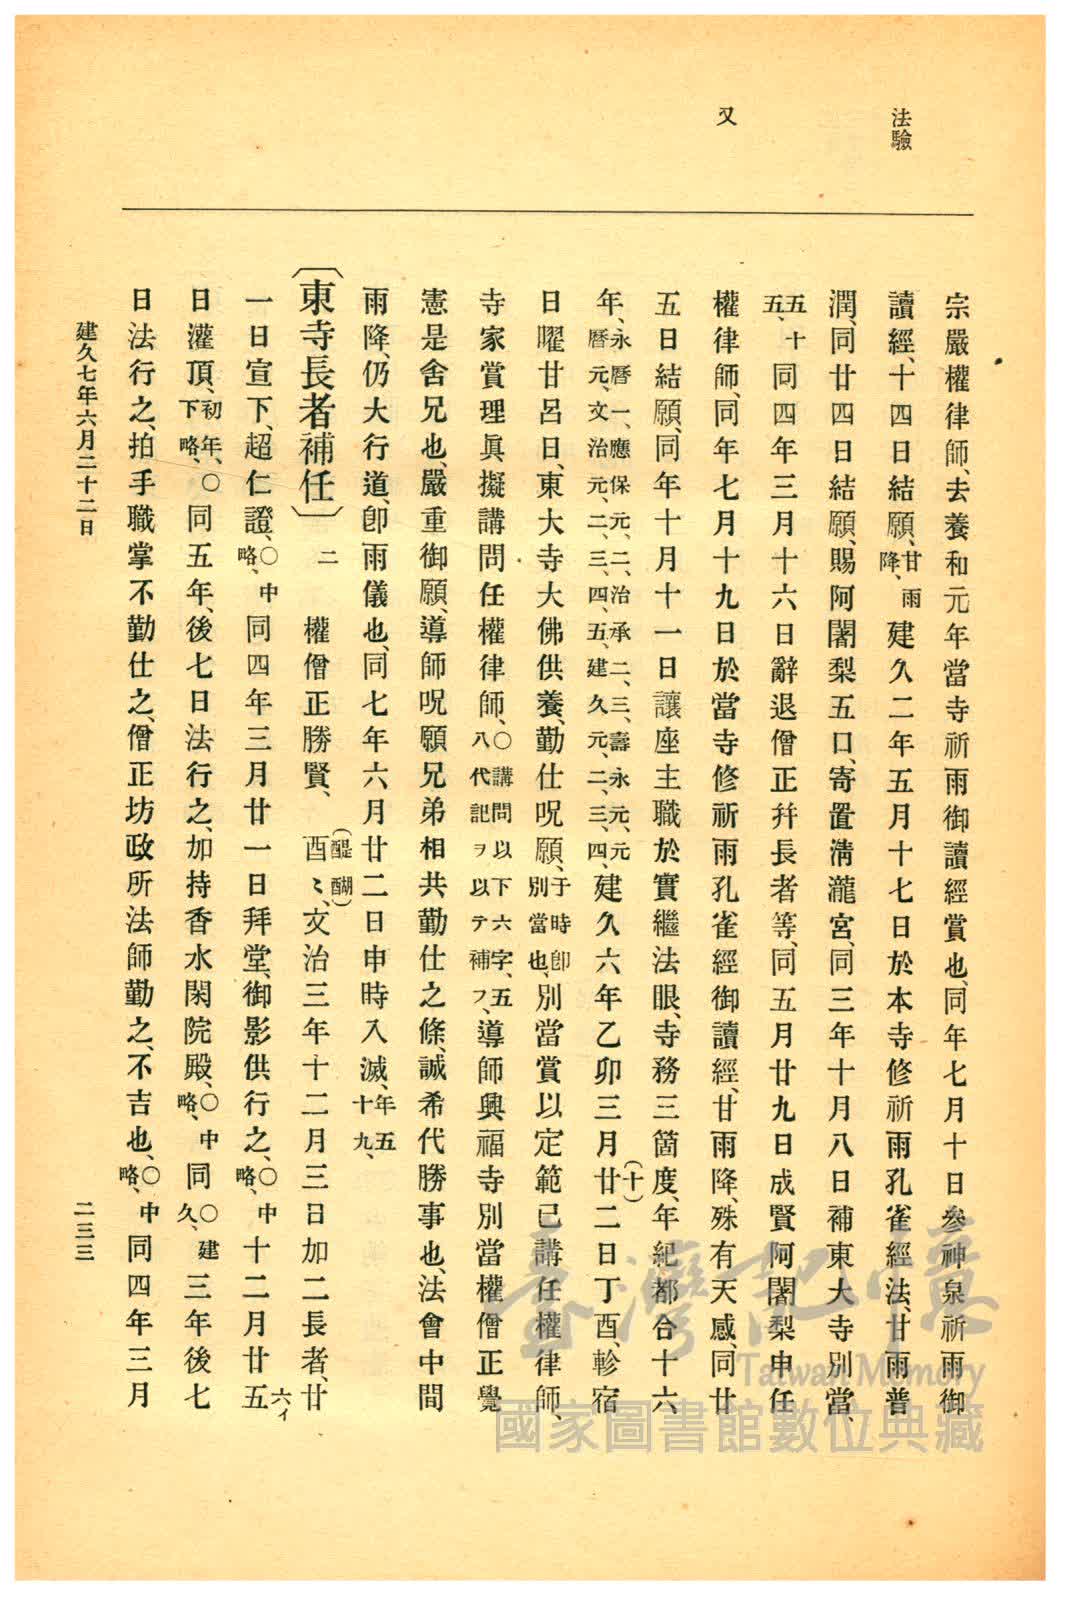 法驗
又
宗嚴權律師、去養和元年當寺祈雨御讀經賞也、同年七月十日參神泉祈雨御
讀經、十四日結願、甘雨降、建久二年五月十七日於本寺修祈雨孔雀經法、甘雨普
潤、同廿四日結願、賜阿闍梨五口、寄置淸瀧宮、同三年十月八日補東大寺別當、
五十五、同四年三月十六日辭退僧正幷長者等、同五月廿九日成賢阿闍梨申任
權律師、同年七月十九日於當寺修祈雨孔雀經御讀經、甘雨降、殊有天感、同廿
五日結願、同年十月十一日讓座主職於實繼法眼、寺務三箇度、年紀都合十六
年、永曆一、應保元、二、治承二、三、壽永元、元曆元、文治元、二、三、四、五、建久元、二、三、四、建久六年乙卯三月廿(十)二日丁酉、軫宿
日曜甘呂日、東大寺大佛供養、勤仕呪願、于時卽別當也、別當賞以定範已講任權律師、
寺家賞理眞擬講問任權律師、〇講問以下六字、五八代記ヲ以テ補フ、導師興福寺別當權僧正覺
憲是舍兄也、嚴重御願、導師呪願兄弟相共勤仕之條、誠希代勝事也、法會中間
雨降、仍大行道、卽雨儀也、同七年六月廿二日申時入滅、年五十九、
〔東寺長者補任〕二 權僧正勝賢、(醍醐)酉〻、文治三年十二月三日加二長者、廿
一日宣下、超仁證、〇中略、同四年三月廿一日拜堂、御影供行之、〇中略、十二月廿五六イ
日灌頂、初年、〇下略、同五年、後七日法行之、加持香水閑院殿、〇中略、同〇建久、三年後七
日法行之、拍手職掌不勤仕之、僧正坊政所法師勤之、不吉也、〇中略、同四年三月
建久七年六月二十二日
二三三
臺灣記憶
Taiwan Memory
國家圖書館數位典藏